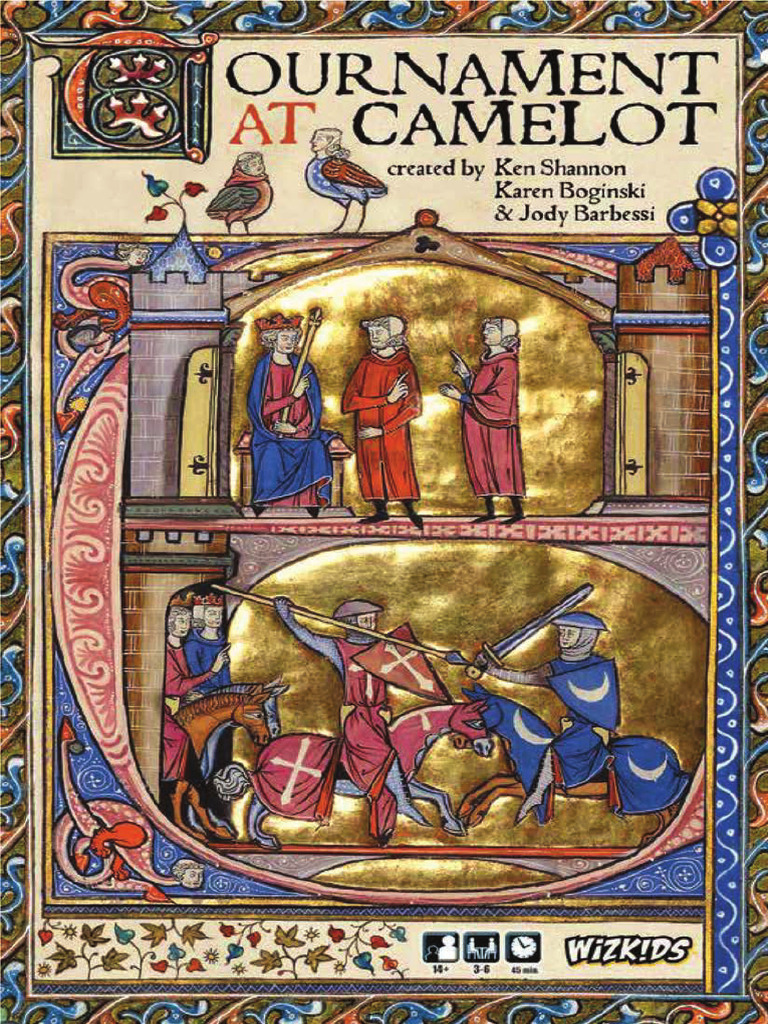 TOURNAMENT
AT CAMELOT
created by Ken Shannon
Karen Boginski
& Jody Barbessi
14+ 3-6 45 min
WIZKIDS